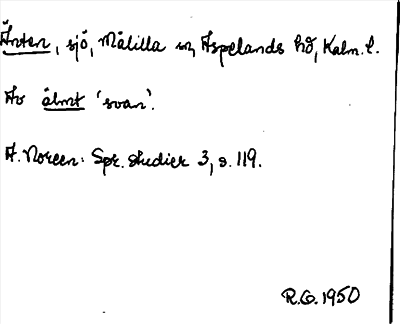 Änten, sjö, Målilla sn, Aspelands hd, Kalm. l.
Av älmt 'svan'.
A. Noreen: Spr. studier 3, s. 119.
R.G. 1950